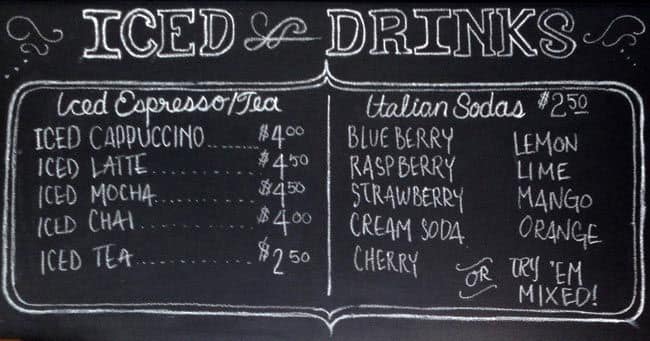 ICED DRINKS
Iced Espresso/Tea
ICED CAPPUCCINO....... $4.00
ICED LATTE............ $4.50
ICED MOCHA............ $4.50
ICED CHAI............. $4.00
ICED TEA.............. $2.50
Italian Sodas $2.50
BLUEBERRY
RASPBERRY
STRAWBERRY
CREAM SODA
CHERRY
LEMON
LIME
MANGO
ORANGE
OR TRY 'EM
MIXED!